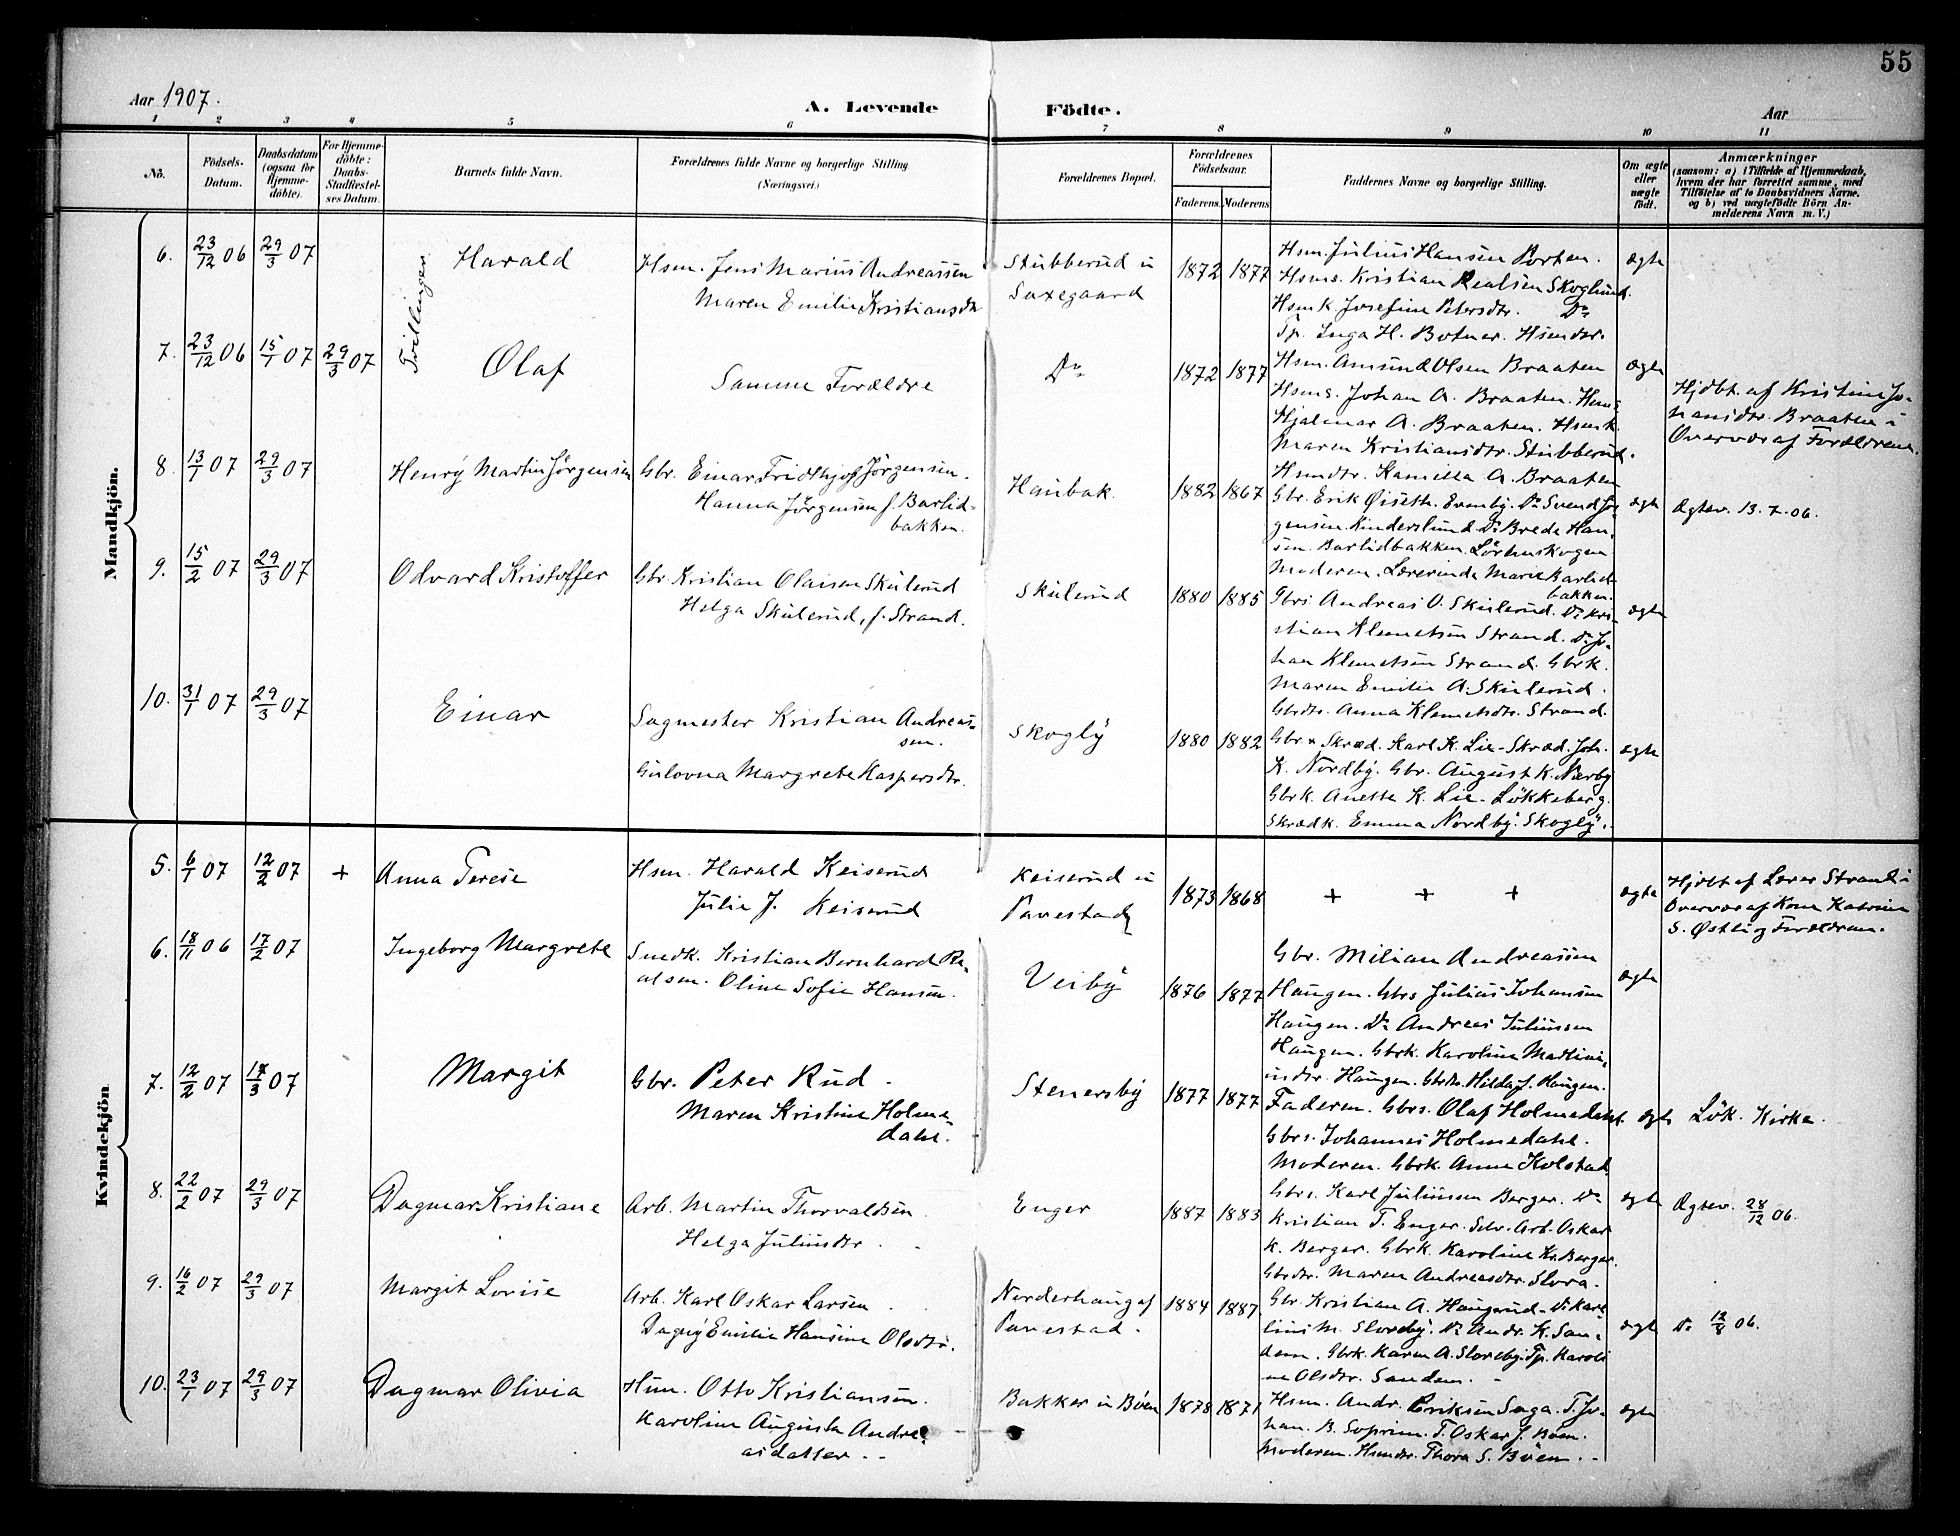 55
Aar 1907.
A. Levende Födte.
Aar
1 2 3 4 5 6 7 8 9 10 11
No.
Födsels-Datum.
Daabsdatum (ogsaa for Hjemme-döbte).
For Hjemme-döbte: Daabs-Stadfæstel-ses Datum.
Barnets fulde Navn.
Forældrenes fulde Navne og borgerlige Stilling
(Næringsvei.)
Forældrenes Bopæl.
Forældrenes Födselsaar.
Faderens. Moderens.
Faddernes Navne og borgerlige Stilling.
Om ægte eller uægte födt.
Anmærkninger
(saasom: a) i Tilfælde af Hjemmedaab,
hvem der har forrettet samme, med
Tilföielse af to Daabsvidners Navne.
og b) ved uægtefödte Börn An-
melderens Navn m. V.)
Mandkjön.
Tvillinger
6. 23/12 06 29/3 07 Harald
Hsm. Jens Marius Andreassen
Maren Emilie Kristiansdtr
Stubberud u
Saxegaard
1872 1877
Hsm. Julius Hansen Porten.
Hsms. Kristian Realsen Skoglund.
Hsmk Josefine Petersdtr. Do
Tp. Inga H. Botner. Hsmdtr.
ægte
7. 23/12 06 15/1 07 29/3 07 Olaf
Samme Forældre
Do
1872 1877
Hsm. Amund Olsen Braaten
Hsms. Johan A. Braaten. Hsms
Hjalmar A. Braaten. Hsmk.
Maren Kristiansdtr. Stubberud.
Hsmdtr. Kamilla A. Braaten
ægte
Hjdbt. af Kristine Jo-
hansdtr. Braaten i
Overvær af Forældrene
8. 13/1 07 29/3 07 Henry Martin Jörgensen
Gbr. Einar Fridthjof Jörgensen.
Hanna Jørgensen f. Barlid-
bakken.
Haubak.
1882 1867
Gbr. Erik Øiseth. Evenby. Do Svend Jör-
gensen. Kinderslund Do Brede Han-
sen. Barlidbakken. Lörenskogen
Moderen. Lærerinde Marie Barlid-
bakken.
ægte
Ægtev. 13.7.06.
9. 15/2 07 29/3 07 Odvard Kristoffer
Gbr. Kristian Olaisen Skulerud
Helga Skulerud, f. Strand.
Skulerud
1880 1885
Gbrs. Andreas O. Skulerud. Do Kri-
stian Klemetsen Strand. Do Jo-
han Klemetsen Strand. Gbrk.
Maren Emilie A. Skulerud.
Gbrdtr. Anna Klemetsdtr. Strand.
ægte
10. 31/1 07 29/3 07 Einar
Sagmester Kristian Andreas-
sen.
Gulovna Margrete Kaspersdtr.
Skogly
1880 1882
Gbr. & Skræd. Karl K. Lie. Skræd. Joh.
K. Nordby. Gbr. August K. Nærby
Gbrk. Anette K. Lie. Lökkeberg.
Skrædk. Emma Nordby. Skogly.
ægte
Kvindekjön
5. 6/1 07 12/2 07 + Anna Terese
Hsm. Harald Keiserud
Julie J. Keiserud
Keiserud u
Pavestad
1873 1868
+ + +
ægte
Hjdbt af Lærer Strand i
Overvær af Kone Katrine
S. Østli og Forældrene.
6. 18/11 06 17/2 07 Ingeborg Margrete
Snedk. Kristian Bernhard Re-
alsen. Oline Sofie Hansen.
Veiby
1876 1877
Gbr. Milian Andreassen
Haugen. Gbrs Julius Johansen
Haugen. Do Andreas Juliussen
Haugen. Gbrk. Karoline Martini-
usdtr. Haugen. Gbrdtr. Hilda J. Haugen.
ægte
7. 12/2 07 17/3 07 Margit
Gbr. Peter Rud.
Maren Kristine Holme-
dahl.
Stenersby
1877 1877
Faderen. Gbrs. Olaf Holmedahl.
Gbrs. Johannes Holmedahl.
Moderen. Gbrk. Anne Kolstad
ægte
Lök. Kirke.
8. 22/2 07 29/3 07 Dagmar Kristiane
Arb. Martin Thorvaldsen
Helga Juliusdtr.
Enger
1887 1883
Gbrs. Karl Juliussen Berger. Do
Kristian T. Enger. Selv. Arb. Oskar
K. Berger. Gbrk. Karoline Kr. Berger.
Gbrdtr. Maren Andreasdtr. Slora.
ægte
Ægtev. 28/12 06.
9. 16/2 07 29/3 07 Margit Lovise
Arb. Karl Oskar Larsen
Dagny Emilie Hansine Olsdtr.
Norderhaug af
Pavestad.
1884 1887
Gbr. Kristian A. Haugerud. Do Karl
linus M. Sloreby. Do Andr. K. San-
dem. Gbrk. Karen A. Sloreby. Tp. Karoli
ne Olsdtr. Sandem.
ægte
Do 12/8 06.
10. 23/1 07 29/3 07 Dagmar Olivia
Hsm. Otto Kristiansen.
Karoline Augusta Andre-
asdatter.
Bakker u Böen
1878 1871
Hsm. Andr. Eriksen Saga. T. Jo-
han. B. Soprim. T. Oskar J. Böen.
Moderen. Hsmdtr. Thora S. Böen.
ægte